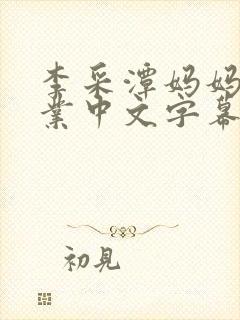 李采潭妈妈
业中文字幕
初見